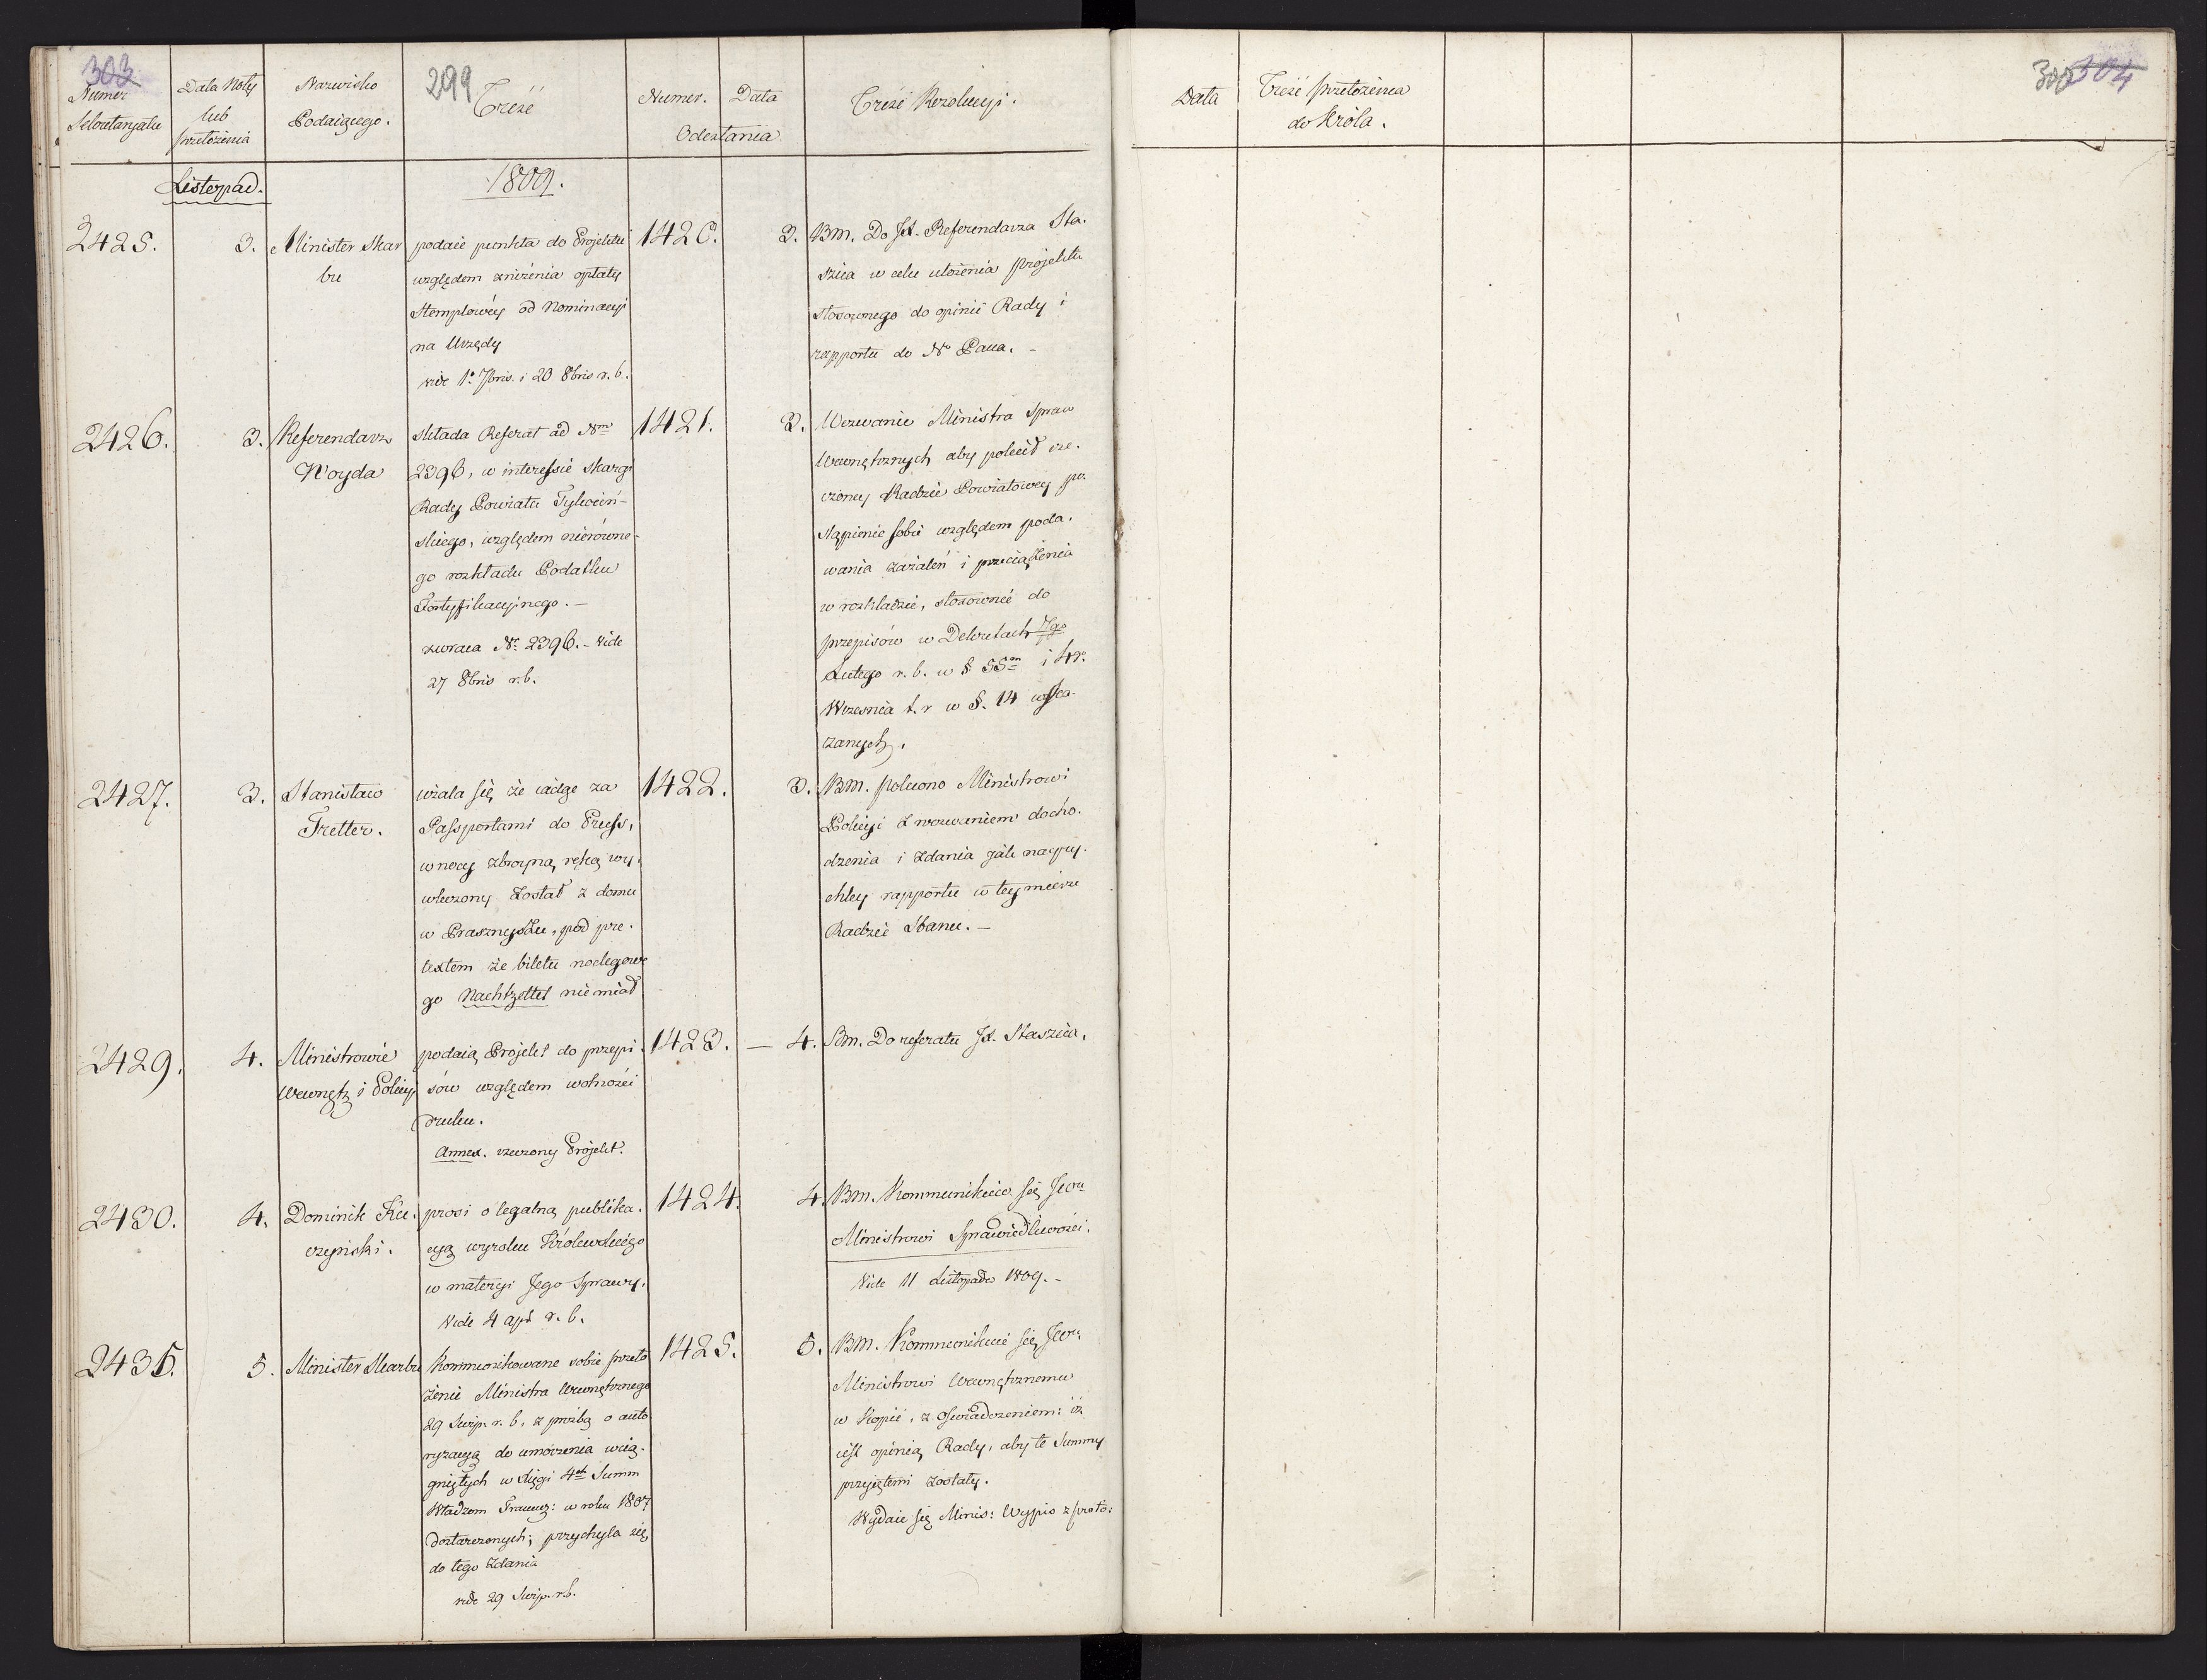 303
299
Numer
Sekretaryatu
Data Noty
lub
przełożenia
Nazwisko
Podaiącego.
Treść
Numer. Data
Odesłania
Treść Rezolucyi.
Listopad.
1809.
2425.
3.
Minister Skar
bu
podaie punkta do Projektu
względem zniżenia opłaty
Stemplowéy od Nominacyi
na Urzędy
vide 1° 7bris. i 20 8bris r. b.
1420.
3.
BM. Do JX. Referendarza Sta-
szica w celu ułożenia projektu
stosownego do opinii Rady i
rapportu do No Pana. -
2426.
3.
Referendarz
Woyda
składa Referat ad Nm
2396, w interessie skargi
Rady Powiatu Tykociń-
skiego, względem nierówne-
go rozkładu Podatku
Fortyfikacyjnego. -
zwraca No 2396. - vide
27 8bris r. b.
1421.
3.
Wezwanie Ministra Spraw
Wewnętrznych aby polecił rze-
czoney Radzie Powiatowey po-
stąpienie sobie względem poda-
wania zażaleń i przeciążenia
w rozkładzie, stosownie do
przepisów w Dekretach 7go
Lutego r. b. w § 55m i 4go
Wrzesnia t. r w §. 14 wska-
zanych.
2427.
3.
Stanisław
Fretter.
użala się że iadąc za
Passportami do Pruss,
w nocy zbroyną ręką wy-
wleczony został z domu
w Prasznyszu, pod pre-
textem że biletu noclegowe
go Nachtzettel nie miał
1422.
3.
BM. polecono Ministrowi
Policyi z wezwaniem docho-
dzenia i zdania jak nayry-
chley rapportu w tey mierze
Radzie Stanu. -
2429.
4.
Ministrowie
Wewnętz i Policyi
podaią Projekt do przepi-
sów względem wolności
druku.
Annex. rzeczony Projekt.
1423. -
4.
Bm. Do referatu JX. Staszica.
2430.
4.
Dominik Ku-
czepiński.
prosi o legalną publika-
cyą wyroku Królewskiego
w materyi Jego Sprawy.
Vide 4 apr r. b.
1424.
4.
BM. Kommunikuie się
Ministrowi Sprawiedliwości.
Vide 11 Listopada 1809. -
2435.
5.
Minister Skarbu
Kommunikowane sobie przeło
żenie Ministra Wewnętrznego
29 Sierp. r. b. z prośbą o auto
ryzacyą do umorzenia wcią-
gniętych w xięgi 4ch Summ
Władzom Francuz: w roku 1807
dostarczonych; przychyla się
do tego zdania
vide 29 Sierp. r. b.
1425.
5.
BM. Kommunikuie się
Ministrowi Wewnętrznemu
w Kopii, z oświadczeniem: iż
iest opinią Rady, aby te Summy
przyiętemi zostały.
Wydaie się Minis: Wypis z proto:
Data
Treść przełożenia
do Króla.
300
304